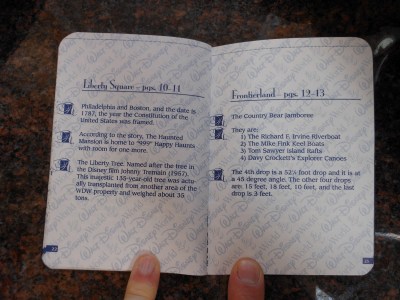 Liberty Square – pgs. 10-11
Philadelphia and Boston, and the date is
1787, the year the Constitution of the
United States was framed.
According to the story, The Haunted
Mansion is home to "999" Happy Haunts
with room for one more.
The Liberty Tree. Named after the tree in
the Disney film Johnny Tremain (1957).
This majestic 135-year-old tree was actu-
ally transplanted from another area of the
WDW property and weighed about 35
tons.
Frontierland – pgs. 12-13
The Country Bear Jamboree
They are:
1) The Richard F. Irvine Riverboat
2) The Mike Fink Keel Boats
3) Tom Sawyer Island Rafts
4) Davy Crockett's Explorer Canoes
The 4th drop is a 52½ foot drop and it is at
a 45 degree angle. The other four drops
are: 15 feet, 18 feet, 10 feet, and the last
drop is 3 feet.